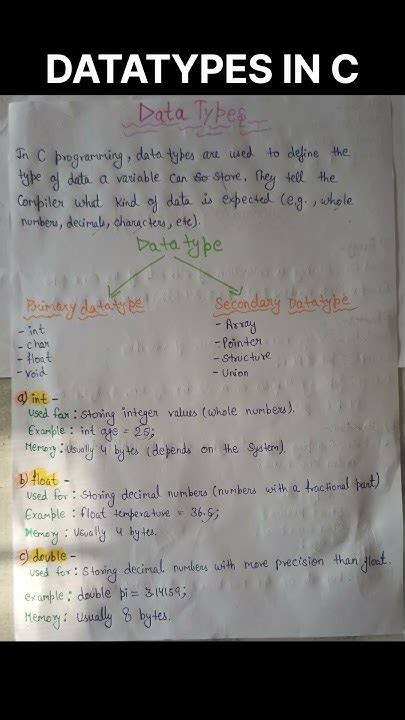 DATATYPES IN C
Data Types
In C programming, data types are used to define the
type of data a variable can store. They tell the
Compiler what kind of data is expected (e.g., whole
numbers, decimals, characters, etc).
Data type
Primary datatype
Secondary Datatype
- int
- char
- float
- void
- Array
- Pointer
- Structure
- Union
a) int -
Used for: Storing integer values (whole numbers).
Example: int age = 25;
Memory: Usually 4 bytes (depends on the system).
b) float -
Used for: Storing decimal numbers (numbers with a fractional part)
Example: float temperature = 36.5;
Memory: Usually 4 bytes.
c) double -
Used for: Storing decimal numbers with more precision than float.
example: double pi = 3.14159;
Memory: Usually 8 bytes.